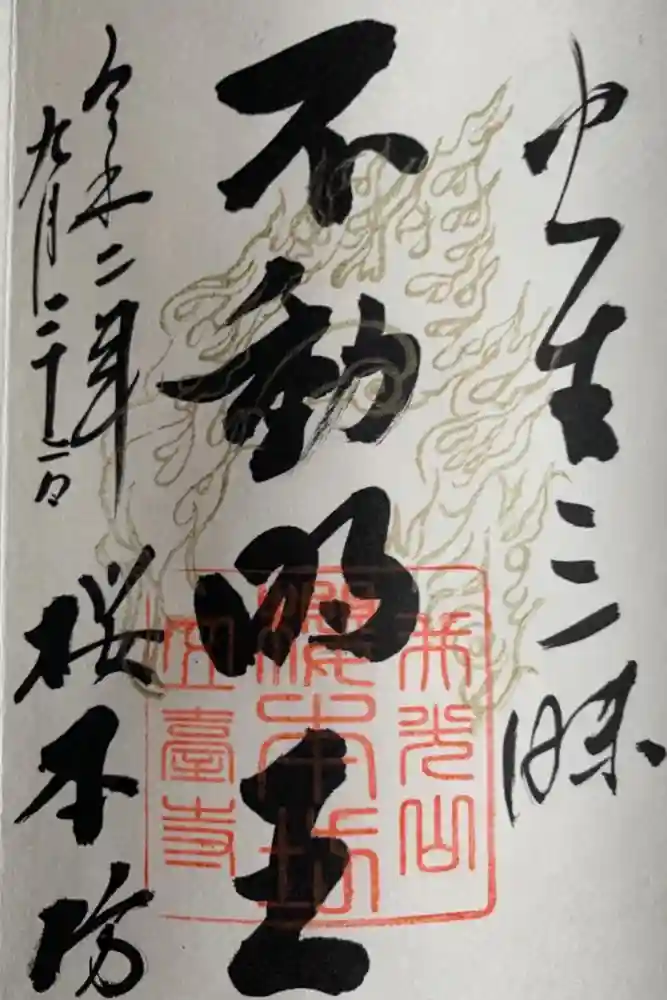 火生三昧
不動明王
令和二年
九月二十二日
桜本坊
井光山
櫻本坊
五臺寺